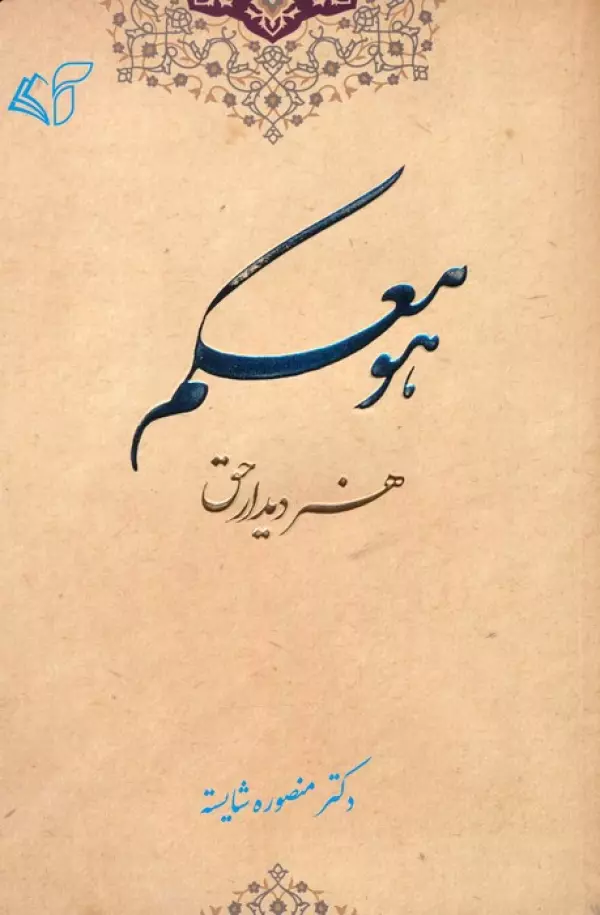 هو معکم
هنر دیدار حق
دکتر منصوره شایسته